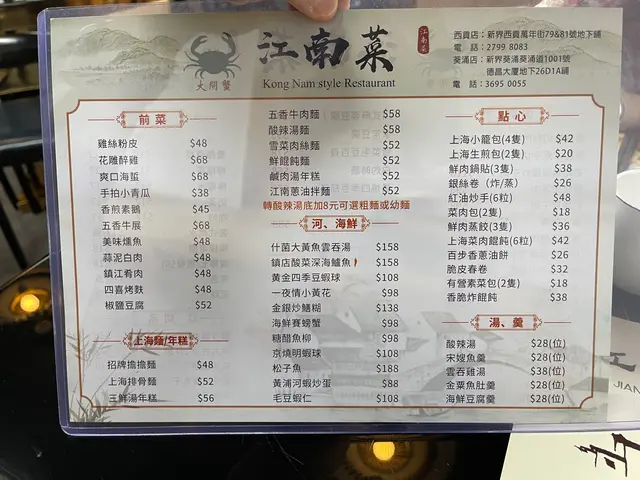 江南菜
江南菜
大閘蟹
Kong Nam style Restaurant
西貢店：新界西貢萬年街79&81號地下鋪
電 話：2799 8083
葵涌店：新界葵涌葵涌道1001號
德昌大廈地下26D1A鋪
電 話：3695 0055
前菜
雞絲粉皮 $48
花雕醉雞 $68
爽口海蜇 $68
手拍小青瓜 $38
香煎素鵝 $45
五香牛展 $68
美味燻魚 $48
蒜泥白肉 $48
鎮江肴肉 $48
四喜烤麩 $48
椒鹽豆腐 $52
上海麵/年糕
招牌擔擔麵 $48
上海排骨麵 $52
三鮮湯年糕 $56
五香牛肉麵 $58
酸辣湯麵 $58
雪菜肉絲麵 $52
鮮餛飩麵 $52
鹹肉湯年糕 $52
江南蔥油拌麵 $52
轉酸辣湯底加8元可選粗麵或幼麵
河、海鮮
什菌大黃魚雲吞湯 $158
鎮店酸菜深海鱸魚 $158
黃金四季豆蝦球 $108
一夜情小黃花 $98
金銀炒鱔糊 $138
海鮮賽螃蟹 $98
糖醋魚柳 $98
京燒明蝦球 $108
松子魚 $188
黃浦河蝦炒蛋 $88
毛豆蝦仁 $108
點心
上海小籠包(4隻) $42
上海生煎包(2隻) $20
鮮肉鍋貼(3隻) $38
銀絲卷（炸/蒸） $26
紅油炒手(6粒) $48
菜肉包(2隻) $18
鮮肉蒸餃(3隻) $36
上海菜肉餛飩(6粒) $42
百步香蔥油餅 $26
脆皮春卷 $32
有營素菜包(2隻) $18
香脆炸餛飩 $38
湯、羹
酸辣湯 $28(位)
宋嫂魚羹 $28(位)
雲吞雞湯 $38(位)
金粟魚肚羹 $28(位)
海鮮豆腐羹 $28(位)
江
JIAN